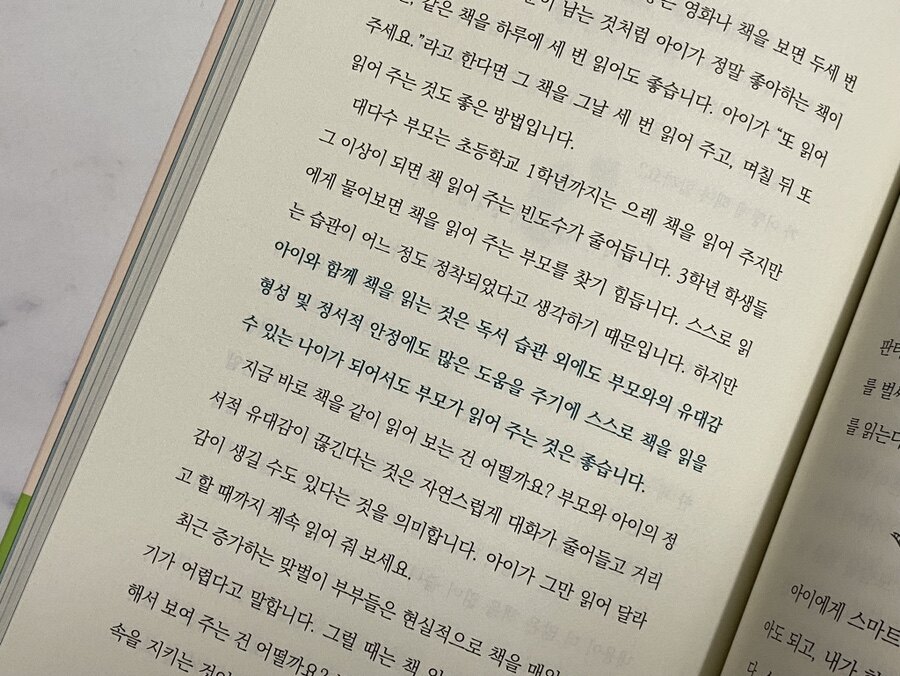 영화나 책을 보면 두세 번
남는 것처럼 아이가 정말 좋아하는 책이
같은 책을 하루에 세 번 읽어도 좋습니다. 아이가 “또 읽어
주세요.”라고 한다면 그 책을 그날 세 번 읽어 주고, 며칠 뒤 또
읽어 주는 것도 좋은 방법입니다.
대다수 부모는 초등학교 1학년까지는 으레 책을 읽어 주지만
그 이상이 되면 책 읽어 주는 빈도수가 줄어듭니다. 3학년 학생들
에게 물어보면 책을 읽어 주는 부모를 찾기 힘듭니다. 스스로 읽
는 습관이 어느 정도 정착되었다고 생각하기 때문입니다. 하지만
아이와 함께 책을 읽는 것은 독서 습관 외에도 부모와의 유대감
형성 및 정서적 안정에도 많은 도움을 주기에 스스로 책을 읽을
수 있는 나이가 되어서도 부모가 읽어 주는 것은 좋습니다.
지금 바로 책을 같이 읽어 보는 건 어떨까요? 부모와 아이의 정
서적 유대감이 끊긴다는 것은 자연스럽게 대화가 줄어들고 거리
감이 생길 수도 있다는 것을 의미합니다. 아이가 그만 읽어 달라
고 할 때까지 계속 읽어 줘 보세요.
최근 증가하는 맞벌이 부부들은 현실적으로 책을 매일
기가 어렵다고 말합니다. 그럴 때는 책
해서 보여 주는 건 어떨까요?
속을 지키는 것이
를 벌써
를 읽는다
아이에게 스마트
아도 되고, 내가
다.